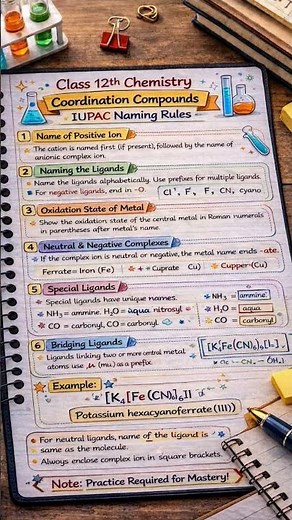 Class 12th Chemistry
Coordination Compounds
IUPAC Naming Rules
1 Name of Positive Ion
The cation is named first (if present), followed by the name of
anionic complex ion.
2 Naming the Ligands
Name the ligands alphabetically. Use prefixes for multiple ligands.
For negative ligands, end in -O. Cl⁻, F, F, CN, cyano
3 Oxidation State of Metal
Show the oxidation state of the central metal in Roman numerals
in parentheses after metal's name.
4 Neutral & Negative Complexes
If the complex ion is neutral or negative, the metal name ends -ate.
Ferrate = Iron (Fe) + = Cuprate Cu) Cupper-(Cu)
5 Special Ligands
Special ligands have unique names.
NH₃ = ammine. H₂O = aqua nitrosyl
CO = carbonyl, CO = carbonyl.
NH₃ = ammine.
H₂O = aqua
CO = carbonyl
6 Bridging Ligands
Ligands linking two or more central metal
atoms use μ (mu) as a prefix.
Example:
[K₄[Fe(CN)₆]
Potassium hexacyanoferrate(III))
For neutral ligands, name of the ligand is
same as the molecule.
Always enclose complex ion in square brackets.
Note: Practice Required for Mastery!